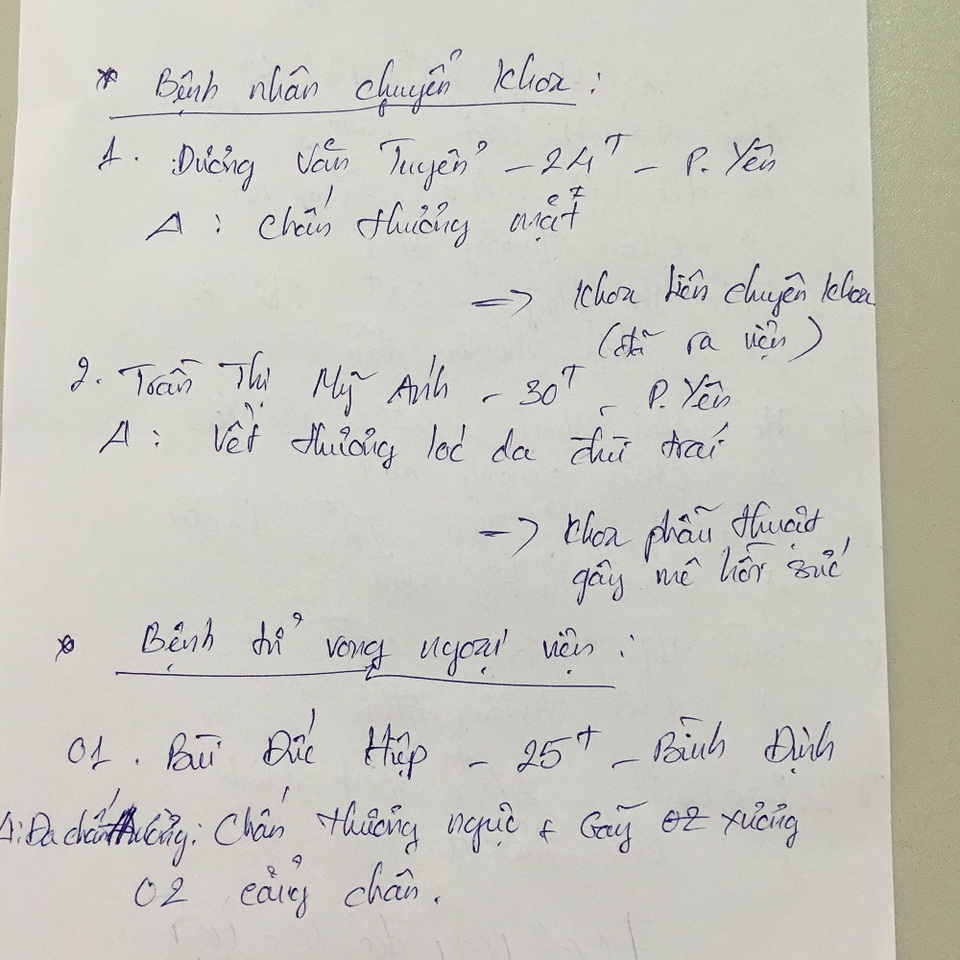 * Bệnh nhân chuyển khoa :
1. Dương Văn Tuyển - 24T - P. Yên
A : Chấn thương mặt
=> Khoa liên chuyên khoa
(đã ra viện)
2. Trần Thị Mỹ Ánh - 30T - P. Yên
A : Vết thương lóc da đùi trái
=> Khoa phẫu thuật
gây mê hồi sức
* Bệnh tử vong ngoại viện :
01. Bùi Đức Hiệp - 25T - Bình Định
A: Đa chấn thương: Chấn thương ngực + Gãy xương
02 cẳng chân.